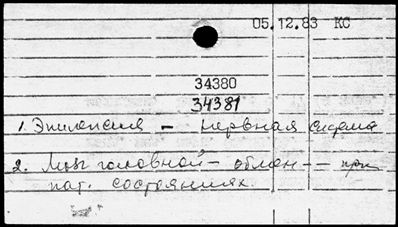 05.12.83 КС
34380
34381
1. Эпилепсия - нервная система
2. Мозг головной - обмен -- при
пат. состояниях.